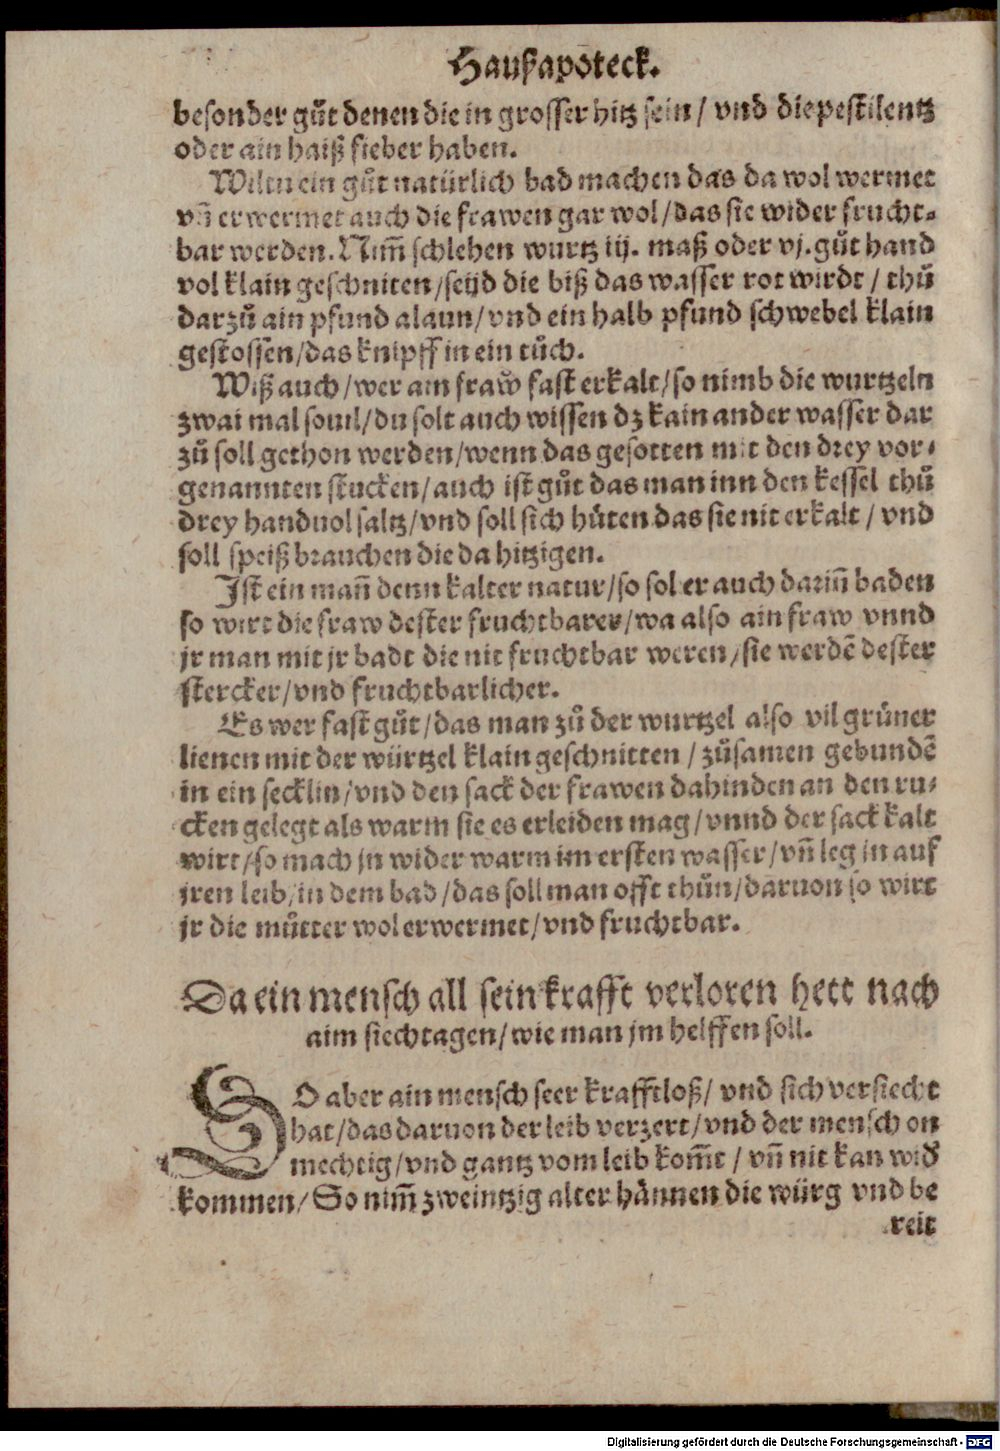 Haußapoteck.
besonder gůt denen die in grosser hitz sein / vnd die pestilentz
oder ain haiß fieber haben.
Wiltu ein gůt natürlich bad machen das da wol wermet
vñ erwermet auch die frawen gar wol / das sie wider frucht⸗
bar werden. Nim̃ schlehen wurtz iij. maß oder vj. gůt hand
vol klain geschniten / seüd die biß das wasser rot wirdt / thů
darzů ain pfund alaun / vnd ein halb pfund schwebel klain
gestossen / das knipff in ein tůch.
Wiß auch / wer ain fraw fast erkalt / so nimb die wurtzeln
zwai mal souil / du solt auch wissen dz kain ander wasser dar
zů soll gethon werden / wenn das gesotten mit den drey vor⸗
genannten stucken / auch ist gůt das man inn den kessel thů
drey handuol saltz / vnd soll sich hüten das sie nit erkalt / vnd
soll speiß brauchen die da hitzigen.
Ist ein mañ denn kalter natur / so sol er auch dariñ baden
so wirt die fraw dester fruchtbarer / wa also ain fraw vnnd
jr man mit jr badt die nit fruchtbar weren / sie werdẽ dester
stercker / vnd fruchtbarlicher.
Es wer fast gůt / das man zů der wurtzel also vil grüner
lienen mit der würtzel klain geschnitten / zůsamen gebundẽ
in ein secklin / vnd den sack der frawen dahinden an den ru⸗
cken gelegt als warm sie es erleiden mag / vnnd der sack kalt
wirt / so mach jn wider warm im ersten wasser / vñ leg jn auf
jren leib / in dem bad / das soll man offt thůn / daruon so wirt
jr die můtter wol erwermet / vnd fruchtbar.
Da ein mensch all sein krafft verloren hett nach
aim siechtagen / wie man jm helffen soll.
SO aber ain mensch seer krafftloß / vnd sich versiecht
hat / das daruon der leib verzert / vnd der mensch on
mechtig / vnd gantz vom leib kom̃t / vñ nit kan wid̕
kommen / So nim̃ zweintzig alter hännen die würg vnd be
reit
Digitalisierung gefördert durch die Deutsche Forschungsgemeinschaft - DFG